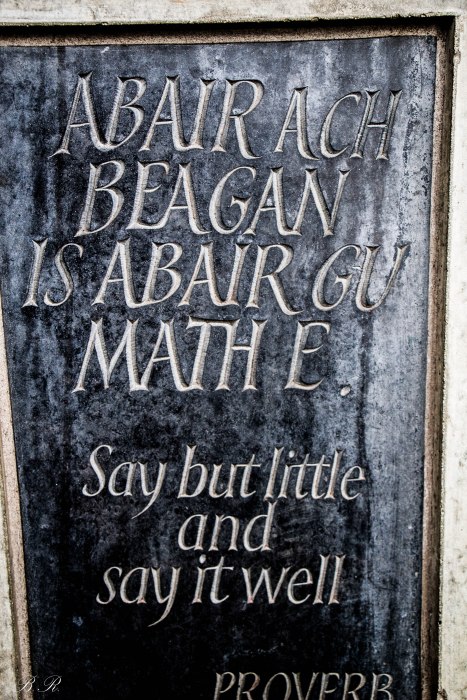 ABAIR ACH
BEAGAN
IS ABAIR GU
MATH E.
Say but little
and
say it well
PROVERB
B R